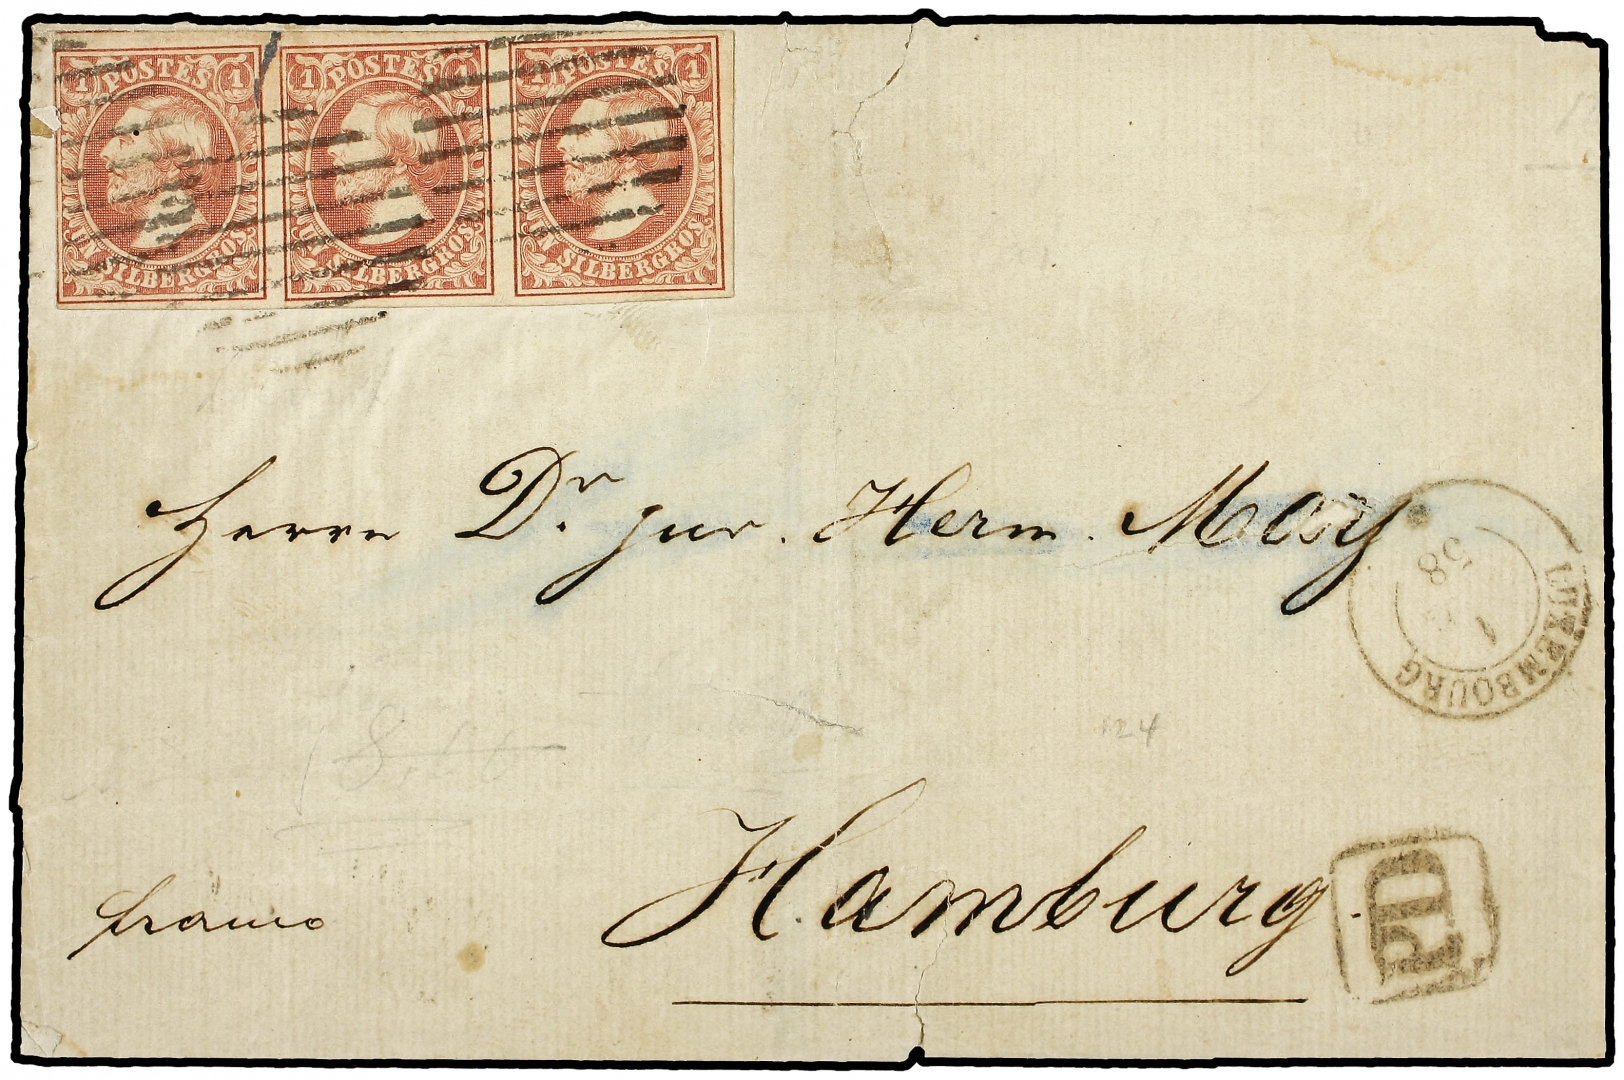 1 POSTES 1 1 POSTES 1 1 POSTES 1
UN SILBERGROS. UN SILBERGROS. UN SILBERGROS.
Herrn Dr. jur. Herm. May
LUXEMBOURG
1
58
124
Hamburg.
franco
PD